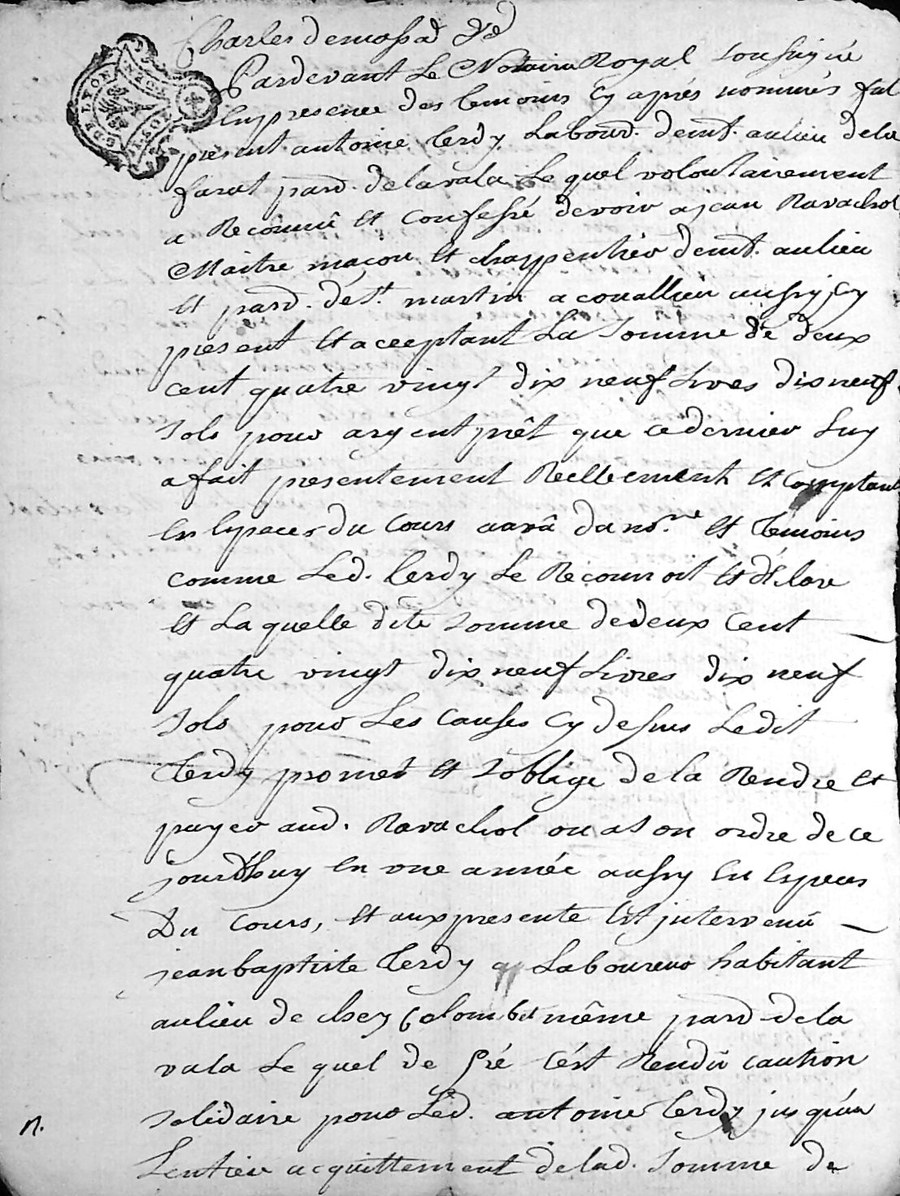 Charles demassa
Pardevant Le Notaire Royal soussigné
En presence des temoins Cy aprés nommés fut
present antoine terdy Labour. demt. aulieu dela
farat paro. delavala Le quel volontairement
a Reconnû Et Confessé devoir ajean Ravachol
Maitre maçon Et charpentier demt. aulieu
Et paro. dést. martin acouallieu aussy Cy
present Et acceptant La somme de deux
cent quatre vingt dix neuf Livres dix neuf
sols pour argent prêt que cedernier Luy
afait presentement Reellement Et Comptant
En Especes du Cours avuâ du nore. Et Temoins
comme Led. terdy Le Reconnoit Et déClare
Et Laquelle dite somme dedeux Cent
quatre vingt dix neuf Livres dix neuf
sols pour Les Causes Cy dessus Ledit
terdy promet Et soblige de la Rendre Et
payer aud. Ravachol ou ason ordre de ce
jourdhuy En une année aussy En Especes
Du Cours, Et aux presente Est jntervenû
jeanbaptiste terdy Laboureur habitant
aulieu de chez Colombet même paro. dela
vala Le quel de gré C'ést Rendû caution
solidaire pour Léd. antoine terdy jusqu'au
n.
Lentier acquittement delad. somme de